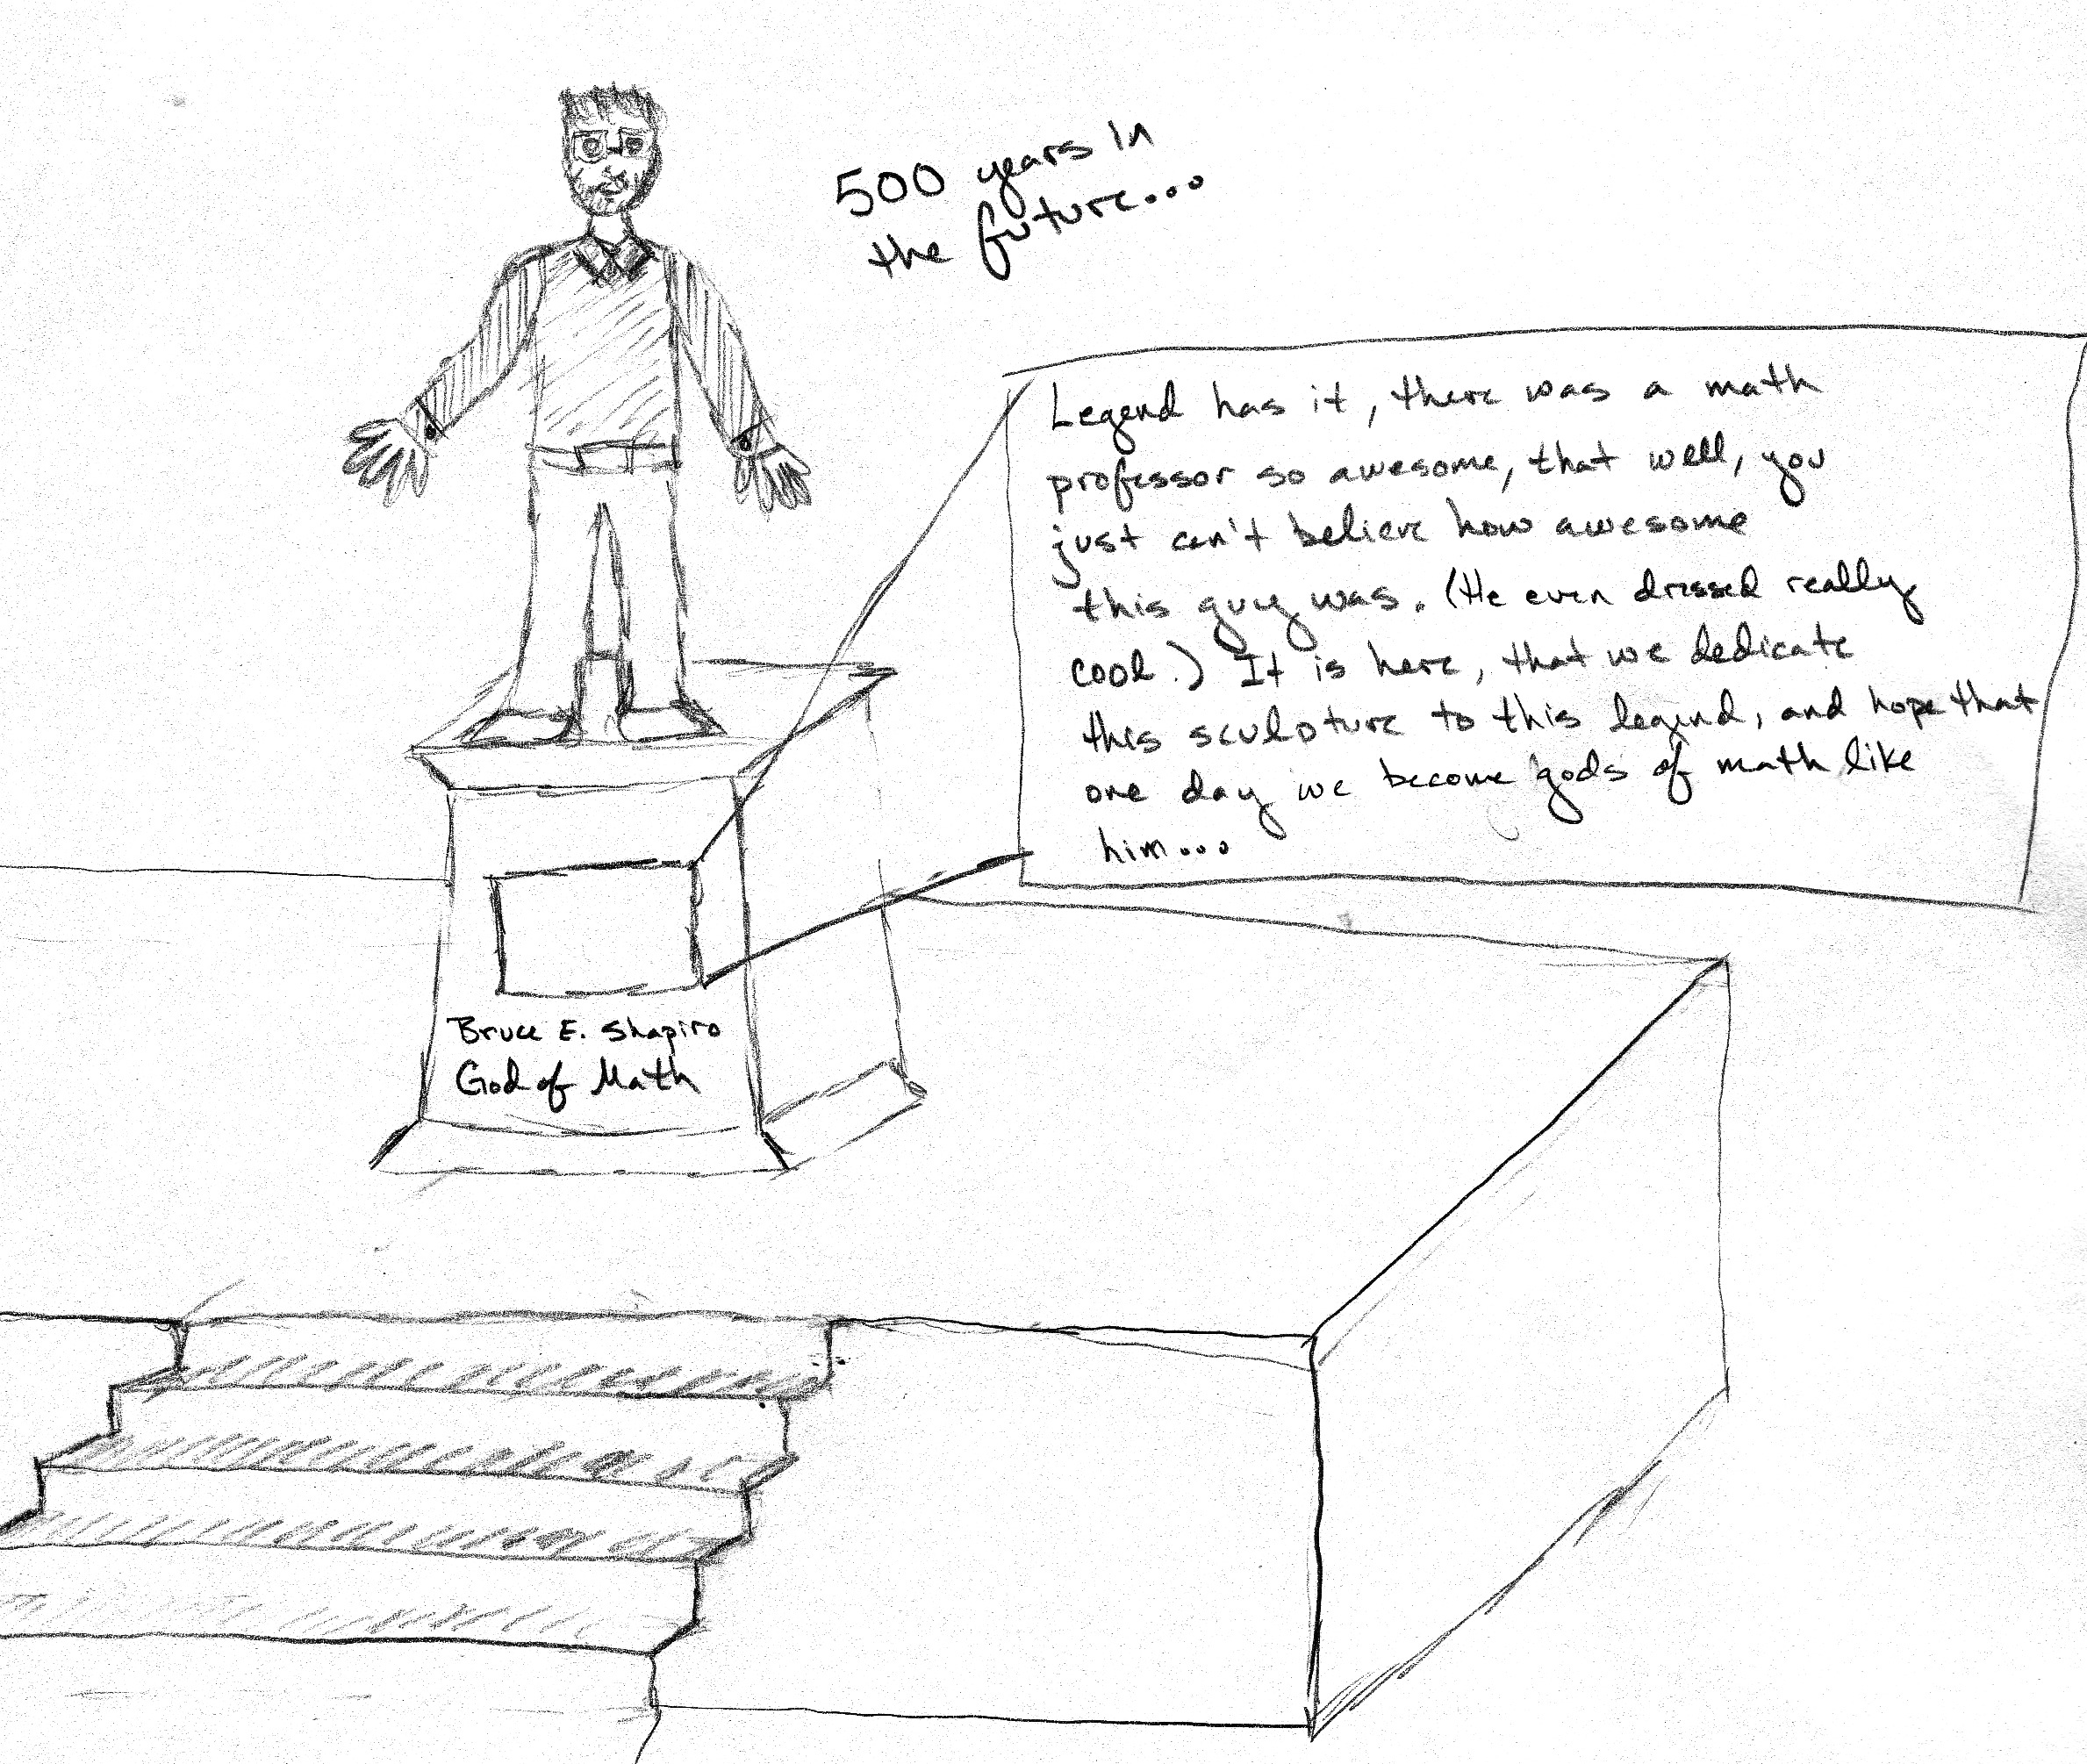 500 years in
the future...
Legend has it, there was a math
professor so awesome, that well, you
just can't believe how awesome
this guy was. (He even dressed really
cool.) It is here, that we dedicate
this sculpture to this legend, and hope that
one day we become gods of math like
him...
Bruce E. Shapiro
God of Math